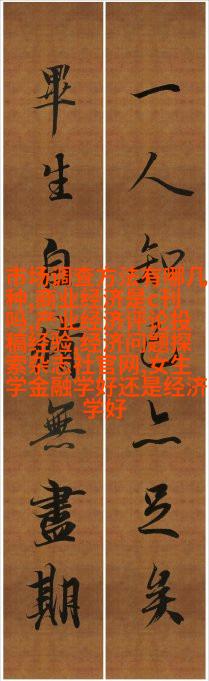 一人知己亦足矣
畢生自脩無盡期
市场调查方法有哪几
种,商业经济是c刊
吗,产业经济评论投
稿经验,经济问题探
索杂志社官网,女生
学金融学好还是经济
学好